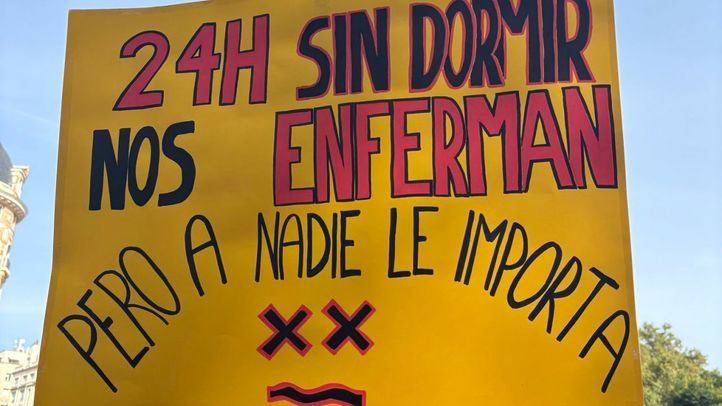 24H SIN DORMIR
NOS ENFERMAN
PERO A NADIE LE IMPORTA